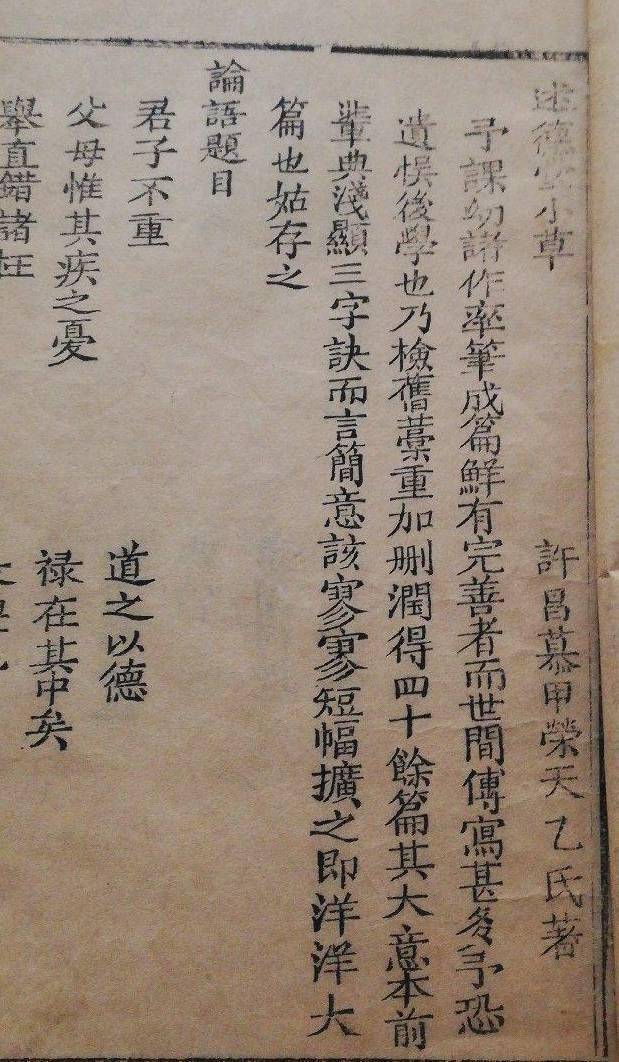 述德堂小草
許昌慕甲榮天乙氏著
予課幼諸作率筆成篇鮮有完善者而世間傳寫甚多予恐
遺悮後學也乃檢舊藁重加刪潤得四十餘篇其大意本前
輩典淺顯三字訣而言簡意該寥寥短幅擴之即洋洋大
篇也姑存之
論語題目
君子不重
道之以德
父母惟其疾之憂
祿在其中矣
舉直錯諸枉